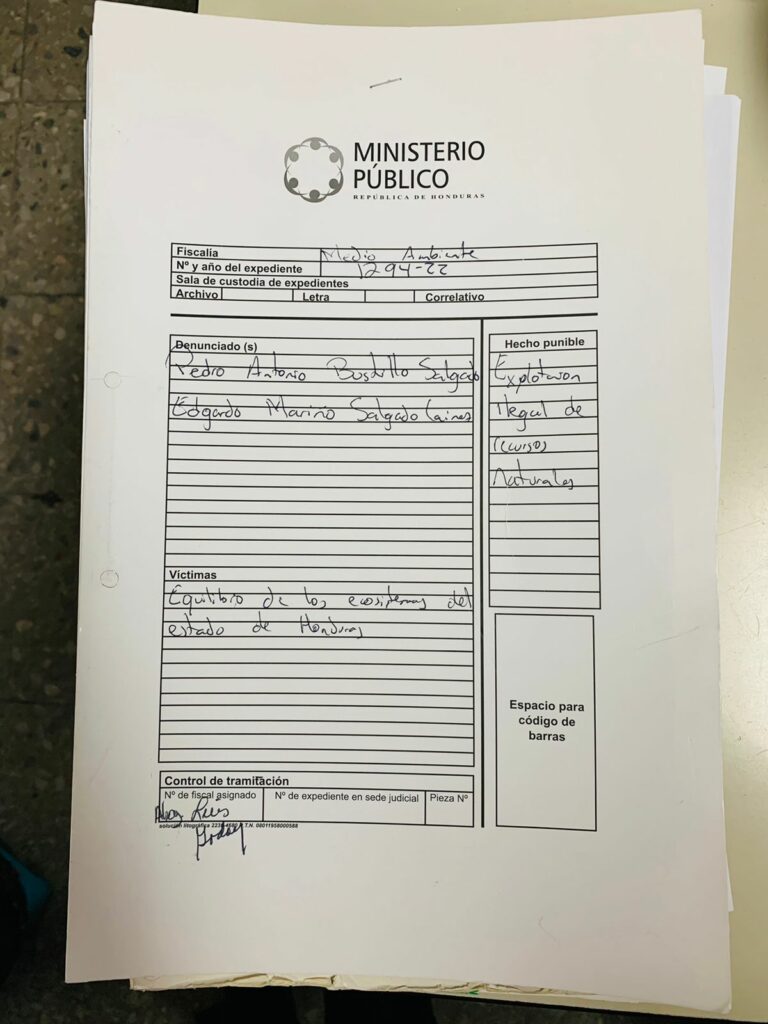 MINISTERIO
PÚBLICO
REPÚBLICA DE HONDURAS
Fiscalía Medio Ambiente
Nº y año del expediente 1294-22
Sala de custodia de expedientes
Archivo Letra Correlativo
Denunciado (s)
Pedro Antonio Bustillo Salgado
Edgardo Mariño Salgado Caines
Hecho punible
Explotacion
Ilegal de
recursos
Naturales
Víctimas
Equilibrio de los ecosistemas del
estado de Honduras
Espacio para
código de
barras
Control de tramitación
Nº de fiscal asignado Nº de expediente en sede judicial Pieza Nº
Abog Luis
Godoy